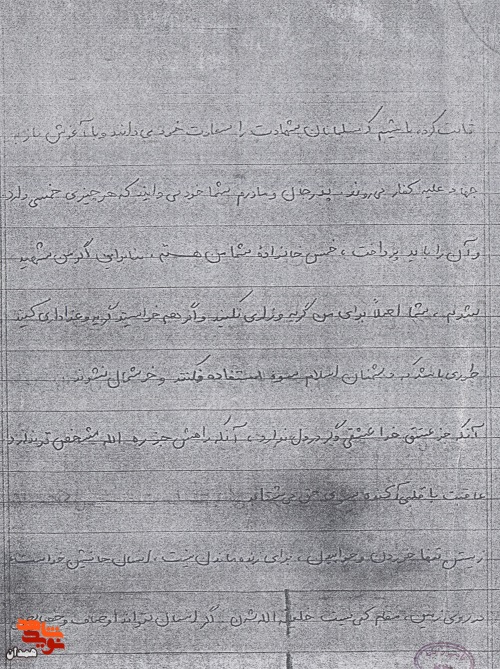 ثابت کرده باشیم که مسلمانان شهادت را سعادت خود می دانند و با آغوش باز به
جهاد علیه کفار می روند. پدر جان و مادرم شما خود می دانید که هر چیزی خمسی دارد
و آن را باید پرداخت، خمس خانواده شما من هستم، بنابراین اگر من شهید
بشوم، شما اصلاً برای من گریه و زاری نکنید و اگر هم خواستید گریه و عزاداری کنید
طوری باشد که دشمنان اسلام سوء استفاده نکنند و خوشحال نشوند.
آنکه جز عشق خدا عشقی دگر در دل ندارد، آنکه راهش جز ره الله مشخص تر ندارد
عاقبت با قلبی آکنده بسوی حق می شتابد
زیستن تنها خوردن و خوابیدن، برای زنده ماندن نیست، انسان جانشین خداست
در روی زمین، مقام کمی نیست خلیفه الله شدن. اگر انسان بتواند اوصاف و
نوید شاهد
همدان